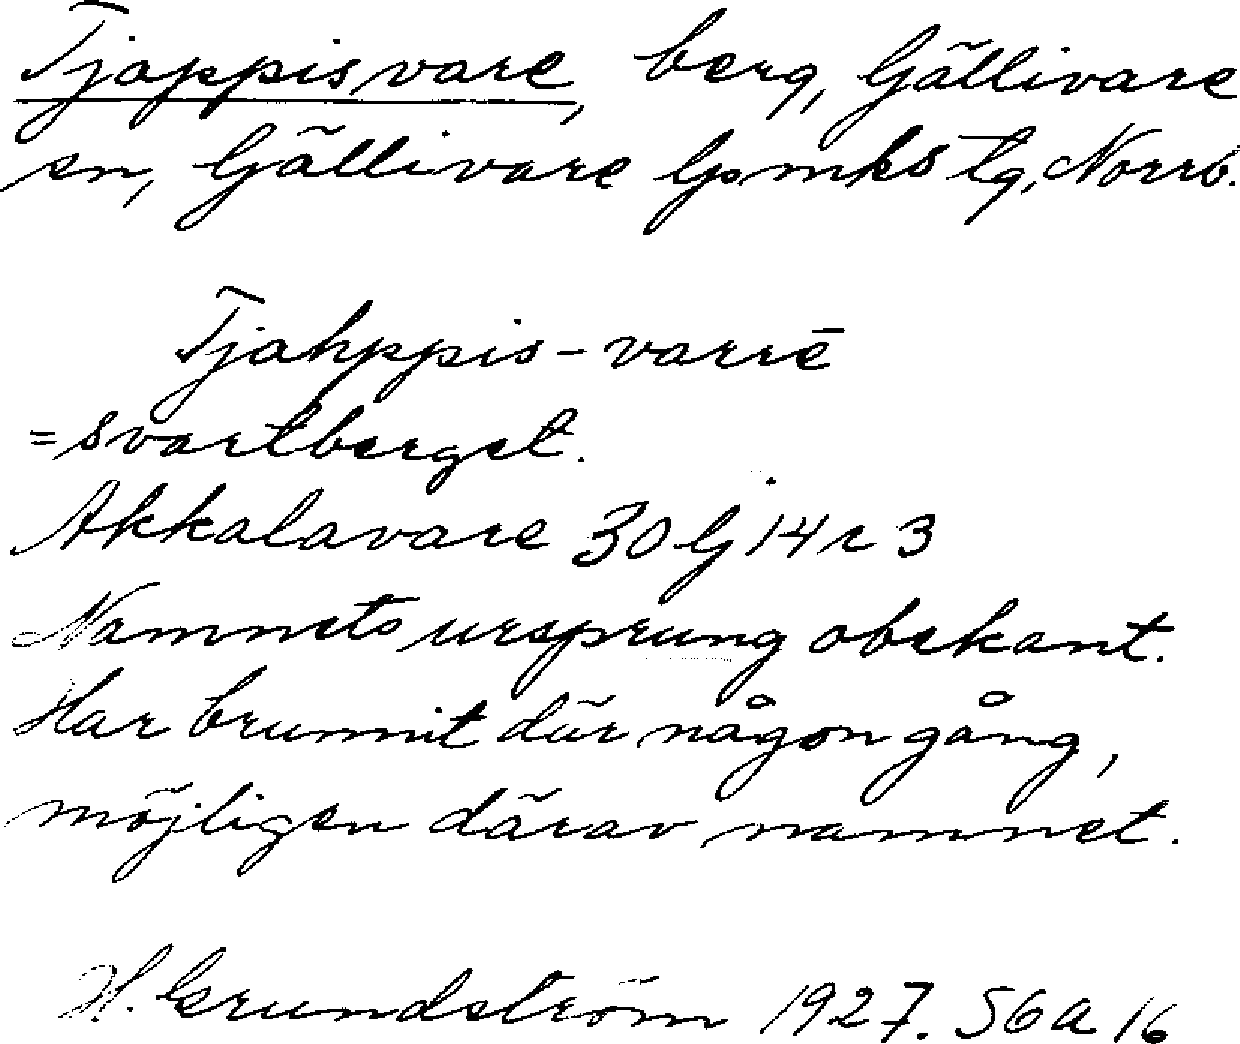 Tjappisvare, berg, Gällivare
sn, Gällivare lpmks tg, Norrb.
Tjahppis-varrē
=svartberget.
Akkalavare 30 G 14 r 3
Namnets ursprung obekant.
Har brunnit där någon gång,
möjligen därav namnet.
H. Grundström 1927. S6a 16